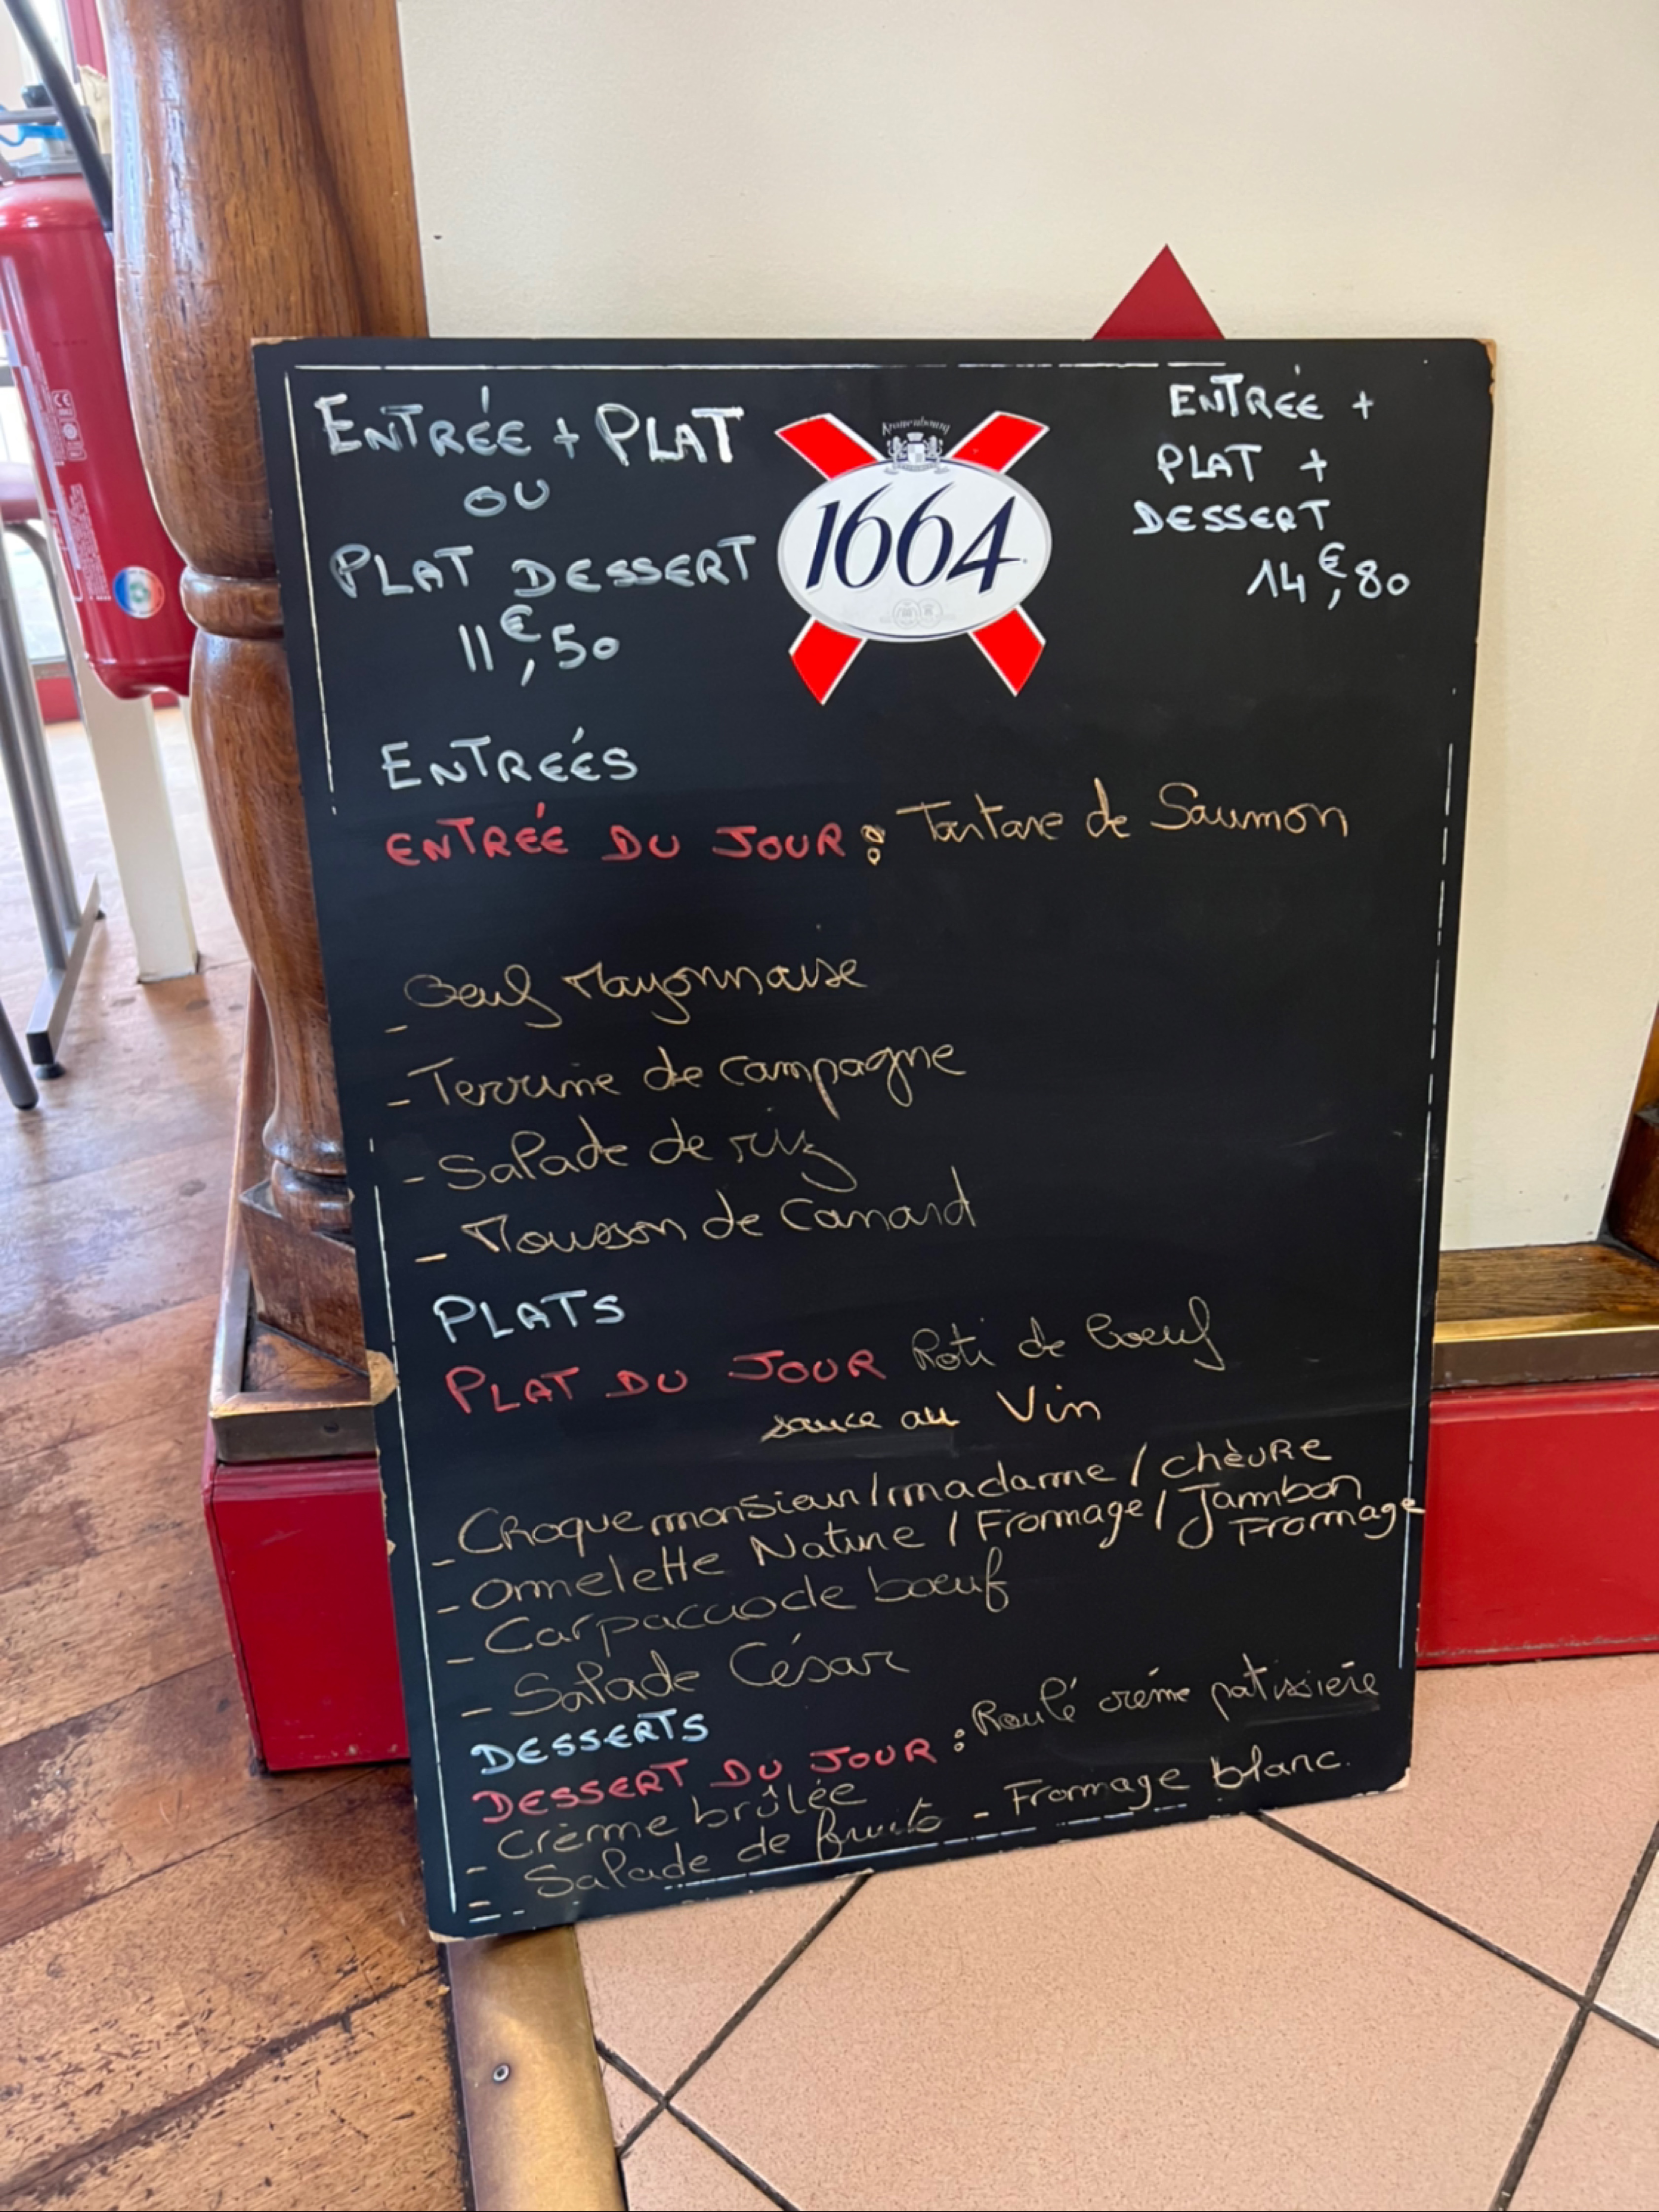 ENTRÉE + PLAT
OU
PLAT DESSERT
11€,50
Kronenbourg
1664
ENTRÉE +
PLAT +
DESSERT
14€,80
ENTRÉES
ENTRÉE DU JOUR : Tartare de Saumon
- Oeuf Mayonnaise
- Terrine de campagne
- Salade de riz
- Mousson de Canard
PLATS
PLAT DU JOUR Roti de boeuf
sauce au Vin
- Croque monsieur/madame / chèvre
- omelette Nature / Fromage / Jambon
Fromage
- Carpaccio de boeuf
- Salade César
DESSERTS
DESSERT DU JOUR : Roulé crème patissière
- Crème brûlée
- Salade de fruits - Fromage blanc.